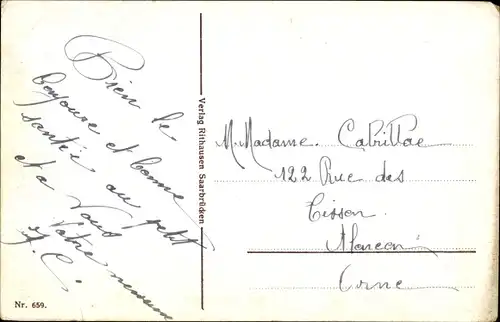 Bien le
bonjour et bonne
santée au petit
et a Vous
Votre
Verlag Rithausen Saarbrücken
M. Madame. Cabrillae
122 Rue des
Tisson
Alancon
Orne
Nr. 659.